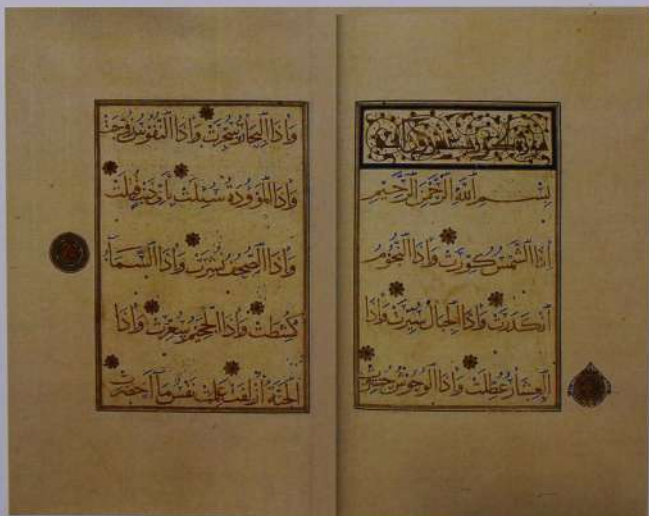 سورة
بِسْمِ اللَّهِ الرَّحْمَنِ الرَّحِيمِ
إِذَا الشَّمْسُ كُوِّرَتْ وَإِذَا النُّجُومُ
انْكَدَرَتْ وَإِذَا الْجِبَالُ سُيِّرَتْ وَإِذَا
الْعِشَارُ عُطِّلَتْ وَإِذَا الْوُحُوشُ حُشِرَتْ
وَإِذَا الْبِحَارُ سُجِّرَتْ وَإِذَا النُّفُوسُ زُوِّجَتْ
وَإِذَا الْمَوْؤُدَةُ سُئِلَتْ بِأَيِّ ذَنْبٍ قُتِلَتْ
وَإِذَا الصُّحُفُ نُشِرَتْ وَإِذَا السَّمَاءُ
كُشِطَتْ وَإِذَا الْجَحِيمُ سُعِّرَتْ وَإِذَا
الْجَنَّةُ أُزْلِفَتْ عَلِمَتْ نَفْسٌ مَا أَحْضَرَتْ